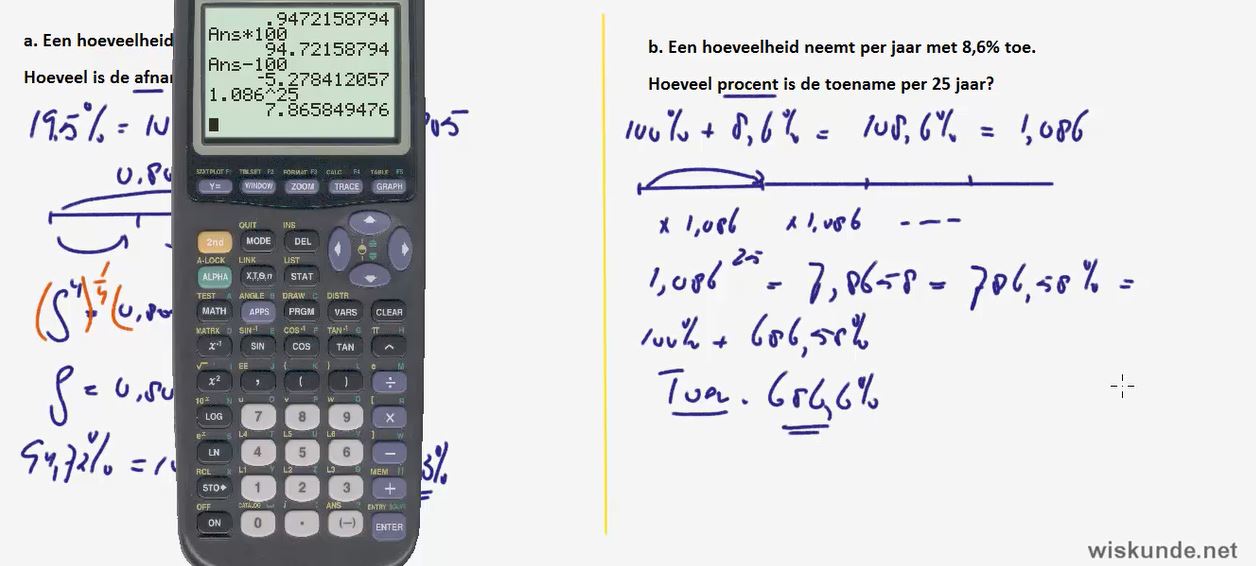 a. Een hoeveelheid
Hoeveel is de
19,5% =
0,80
94,72% =
3%
.9472158794
Ans*100
94.72158794
Ans-100
-5.278412057
1.086^25
7.865849476
STAT PLOT F1 TBLSET F2 FORMAT F3 CALC F4 TABLE F5
Y= WINDOW ZOOM TRACE GRAPH
QUIT INS
2nd MODE DEL
A-LOCK LINK LIST
ALPHA X,T,Θ,n STAT
TEST A ANGLE B DRAW C DISTR
MATH APPS PRGM VARS CLEAR
MATRX D SIN-1 E COS-1 F TAN-1 G π H
x-1 SIN COS TAN ^
x² , ( ) ÷
LOG 7 8 9 X
LN 4 5 6 −
RCL X L1 Y L2 Z L3 θ MEM "
STO▸ 1 2 3 +
OFF CATALOG i : ANS ? ENTRY SOLVE
ON 0 . (−) ENTER
b. Een hoeveelheid neemt per jaar met 8,6% toe.
Hoeveel procent is de toename per 25 jaar?
100% + 8,6% = 108,6% = 1,086
x 1,086 x 1,086 ----
1,086^25 = 7,8658 = 786,58% =
100% + 686,58%
Toen. 686,6%
wiskunde.net